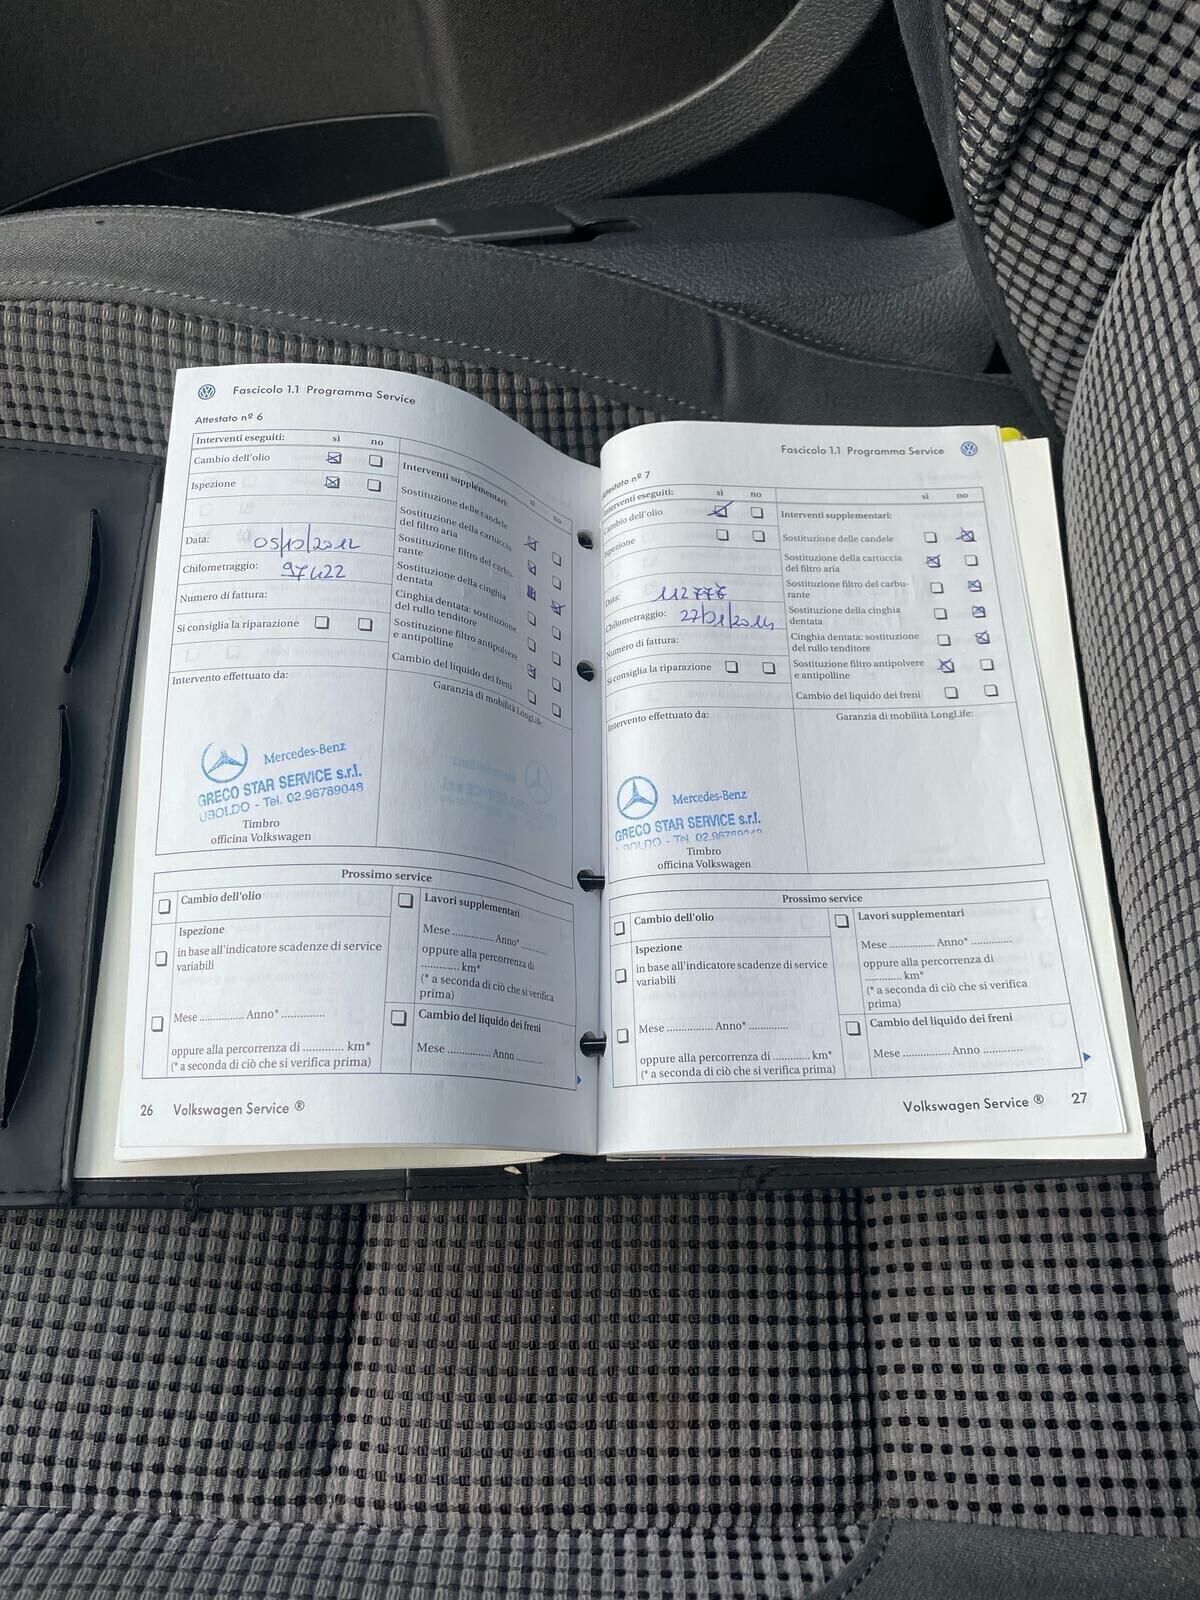 Fascicolo 1.1 Programma Service
Attestato nº 6
Interventi eseguiti: sì no
Cambio dell'olio
Ispezione
Data: 05/10/2012
Chilometraggio: 97422
Numero di fattura:
Si consiglia la riparazione
Intervento effettuato da:
Mercedes-Benz
GRECO STAR SERVICE s.r.l.
UBOLDO - Tel. 02.96789048
Timbro
officina Volkswagen
Interventi supplementari: sì no
Sostituzione delle candele
Sostituzione della cartuccia
del filtro aria
Sostituzione filtro del carbu-
rante
Sostituzione della cinghia
dentata
Cinghia dentata: sostituzione
del rullo tenditore
Sostituzione filtro antipolvere
e antipolline
Cambio del liquido dei freni
Garanzia di mobilità LongLife:
Prossimo service
Cambio dell'olio
Ispezione
in base all'indicatore scadenze di service
variabili
Mese ............... Anno* ...............
oppure alla percorrenza di ............ km*
(* a seconda di ciò che si verifica prima)
Lavori supplementari
Mese ............... Anno* ...............
oppure alla percorrenza di
............ km*
(* a seconda di ciò che si verifica
prima)
Cambio del liquido dei freni
Mese ............... Anno .........
26 Volkswagen Service ®
Fascicolo 1.1 Programma Service
Attestato nº 7
Interventi eseguiti: sì no
Cambio dell'olio
Ispezione
Data: 112776
Chilometraggio: 27/01/2014
Numero di fattura:
Si consiglia la riparazione
Intervento effettuato da:
Mercedes-Benz
GRECO STAR SERVICE s.r.l.
UBOLDO - Tel.
Timbro
officina Volkswagen
sì no
Interventi supplementari:
Sostituzione delle candele
Sostituzione della cartuccia
del filtro aria
Sostituzione filtro del carbu-
rante
Sostituzione della cinghia
dentata
Cinghia dentata: sostituzione
del rullo tenditore
Sostituzione filtro antipolvere
e antipolline
Cambio del liquido dei freni
Garanzia di mobilità LongLife:
Prossimo service
Cambio dell'olio
Ispezione
in base all'indicatore scadenze di service
variabili
Mese ............... Anno* ............
oppure alla percorrenza di ............ km*
(* a seconda di ciò che si verifica prima)
Lavori supplementari
Mese ............... Anno* ............
oppure alla percorrenza di
............ km*
(* a seconda di ciò che si verifica
prima)
Cambio del liquido dei freni
Mese ............... Anno ............
Volkswagen Service ® 27